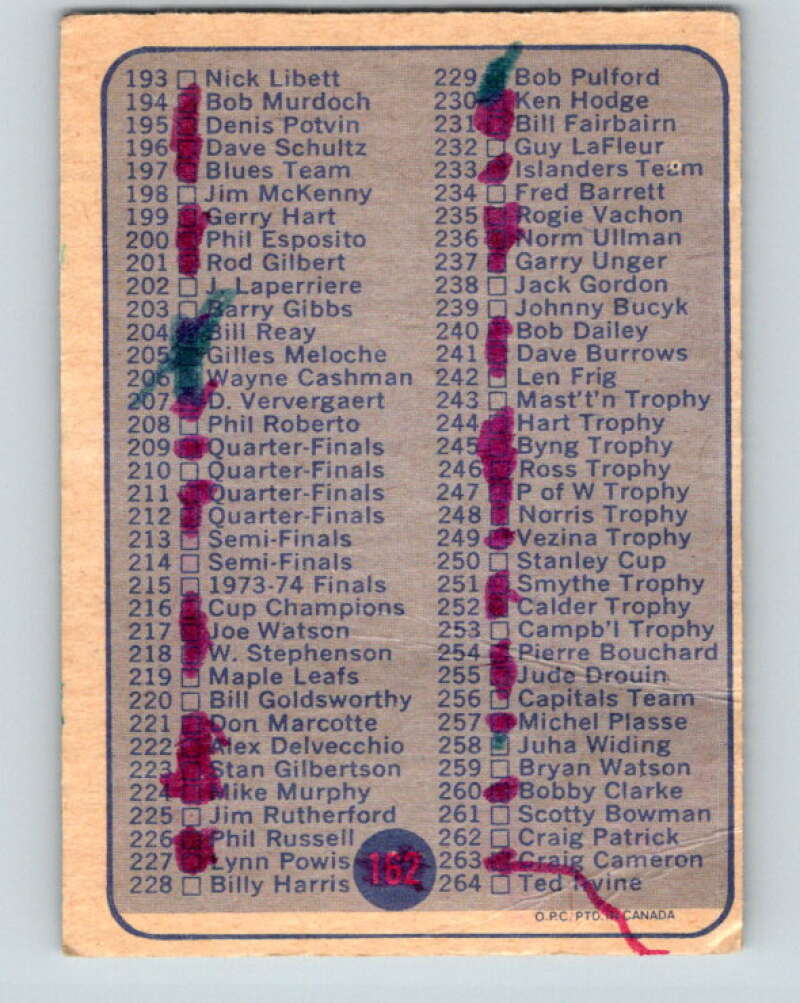 193 Nick Libett
194 Bob Murdoch
195 Denis Potvin
196 Dave Schultz
197 Blues Team
198 Jim McKenny
199 Gerry Hart
200 Phil Esposito
201 Rod Gilbert
202 J. Laperriere
203 Barry Gibbs
204 Bill Reay
205 Gilles Meloche
206 Wayne Cashman
207 D. Ververgaert
208 Phil Roberto
209 Quarter-Finals
210 Quarter-Finals
211 Quarter-Finals
212 Quarter-Finals
213 Semi-Finals
214 Semi-Finals
215 1973-74 Finals
216 Cup Champions
217 Joe Watson
218 W. Stephenson
219 Maple Leafs
220 Bill Goldsworthy
221 Don Marcotte
222 Alex Delvecchio
223 Stan Gilbertson
224 Mike Murphy
225 Jim Rutherford
226 Phil Russell
227 Lynn Powis
228 Billy Harris
162
229 Bob Pulford
230 Ken Hodge
231 Bill Fairbairn
232 Guy LaFleur
233 Islanders Team
234 Fred Barrett
235 Rogie Vachon
236 Norm Ullman
237 Garry Unger
238 Jack Gordon
239 Johnny Bucyk
240 Bob Dailey
241 Dave Burrows
242 Len Frig
243 Mast't'n Trophy
244 Hart Trophy
245 Byng Trophy
246 Ross Trophy
247 P of W Trophy
248 Norris Trophy
249 Vezina Trophy
250 Stanley Cup
251 Smythe Trophy
252 Calder Trophy
253 Campb'l Trophy
254 Pierre Bouchard
255 Jude Drouin
256 Capitals Team
257 Michel Plasse
258 Juha Widing
259 Bryan Watson
260 Bobby Clarke
261 Scotty Bowman
262 Craig Patrick
263 Craig Cameron
264 Ted Irvine
O.P.C. PTD. IN CANADA